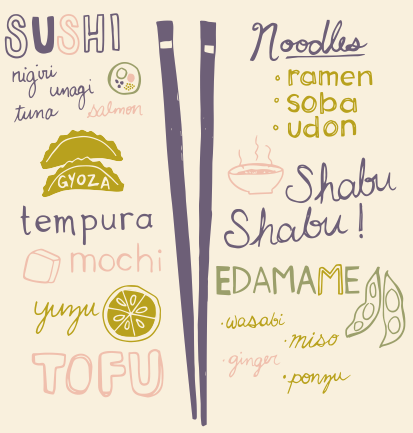 SUSHI
nigiri
unagi
tuna
salmon
GYOZA
tempura
mochi
yuzu
TOFU
Noodles
· ramen
· soba
· udon
Shabu
Shabu!
EDAMAME
· wasabi
· miso
· ginger
· ponzu